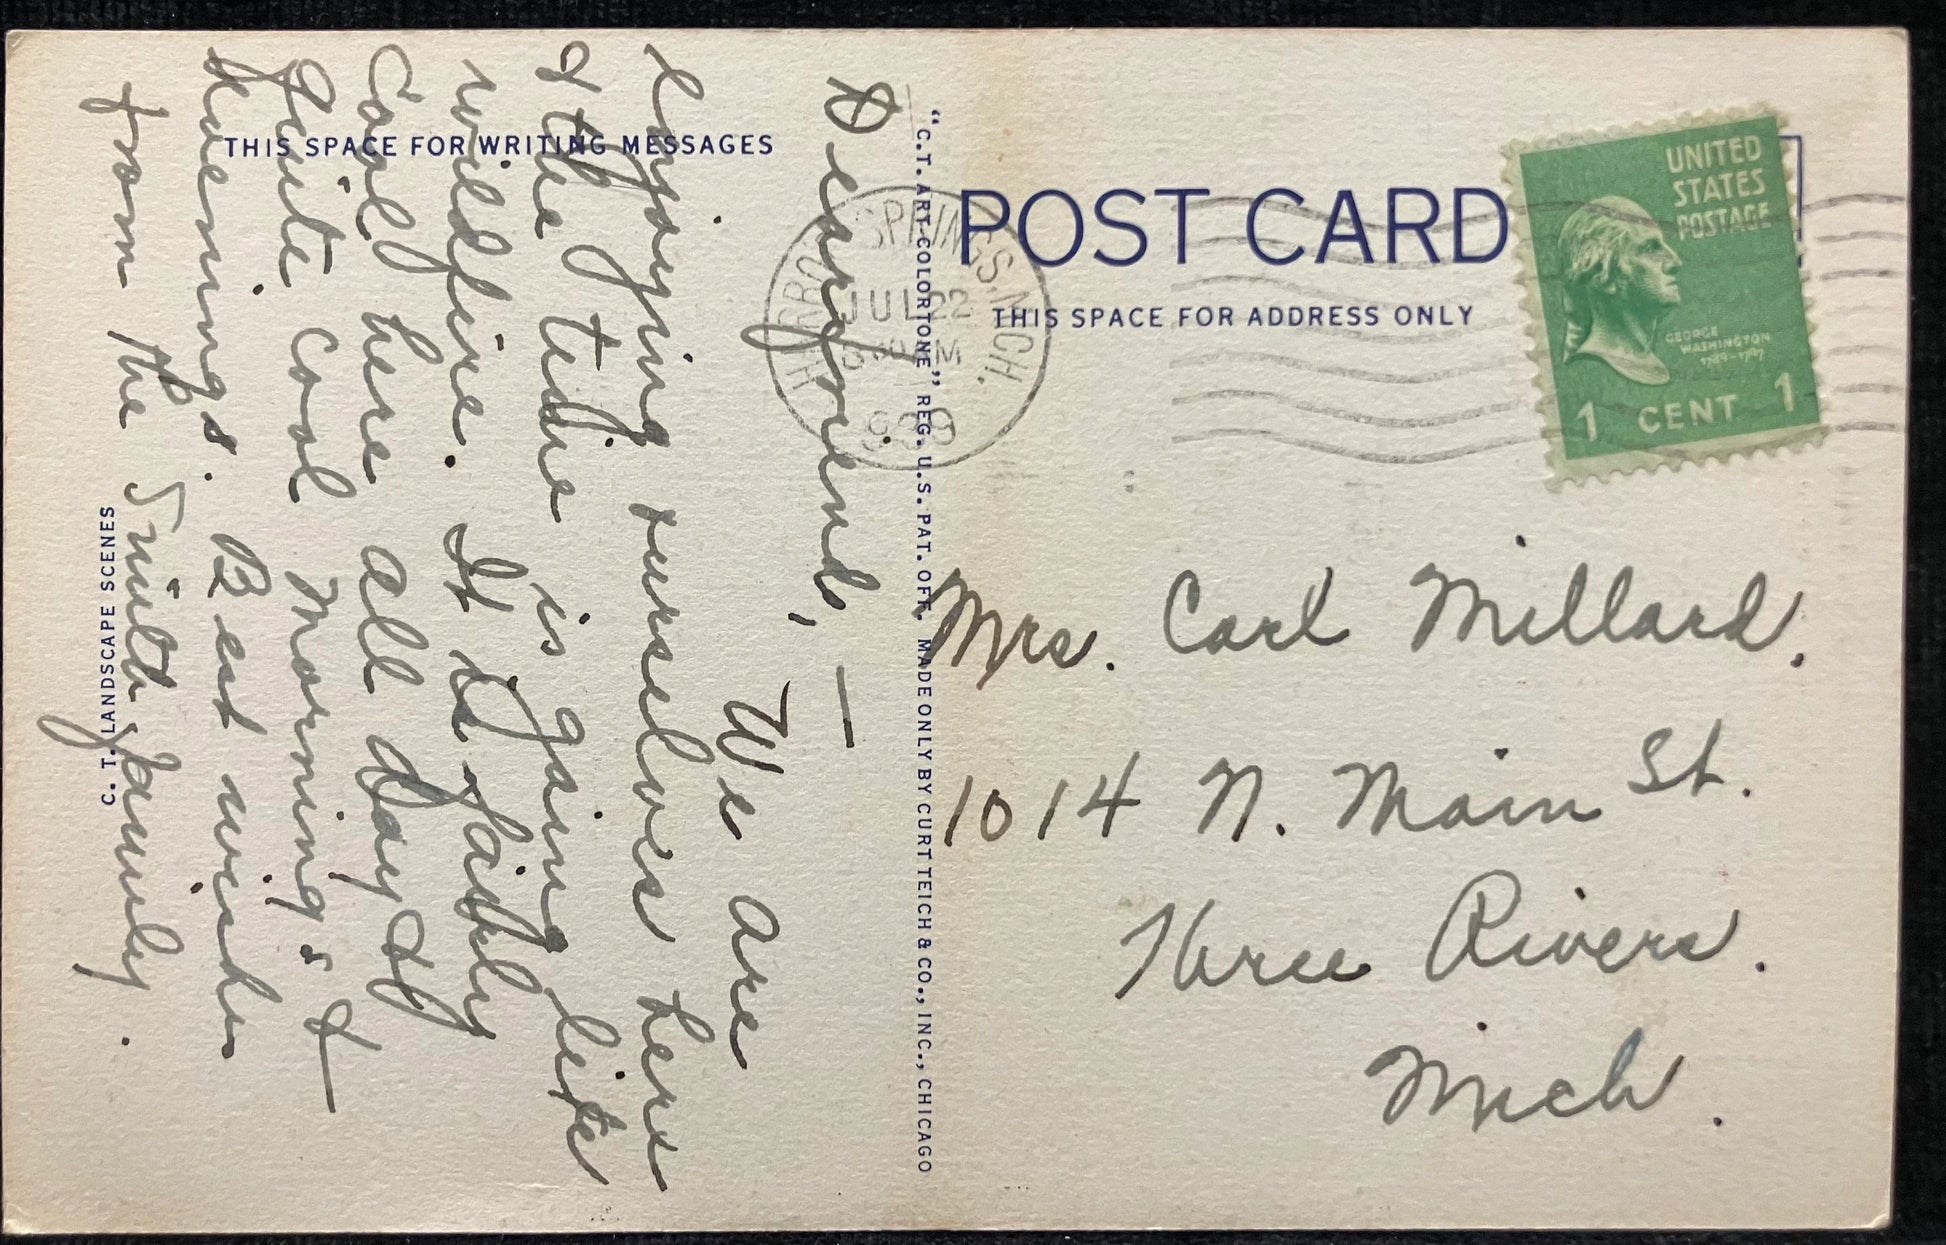 THIS SPACE FOR WRITING MESSAGES
Dear friends, —
We are
enjoying ourselves here
& the time is going like
wildfire. It is fairly
cool here all day &
quite cool mornings &
evenings. Best wishes
from the Smith family.
C. T. LANDSCAPE SCENES
"C. T. ART-COLORTONE" REG. U.S. PAT. OFF. MADE ONLY BY CURT TEICH & CO., INC., CHICAGO
POST CARD
THIS SPACE FOR ADDRESS ONLY
SPRINGS. MICH.
JUL 22
UNITED
STATES
POSTAGE
GEORGE
WASHINGTON
1789-1797
1 CENT 1
Mrs. Carl Millard.
1014 N. Main St.
Three Rivers.
Mich.